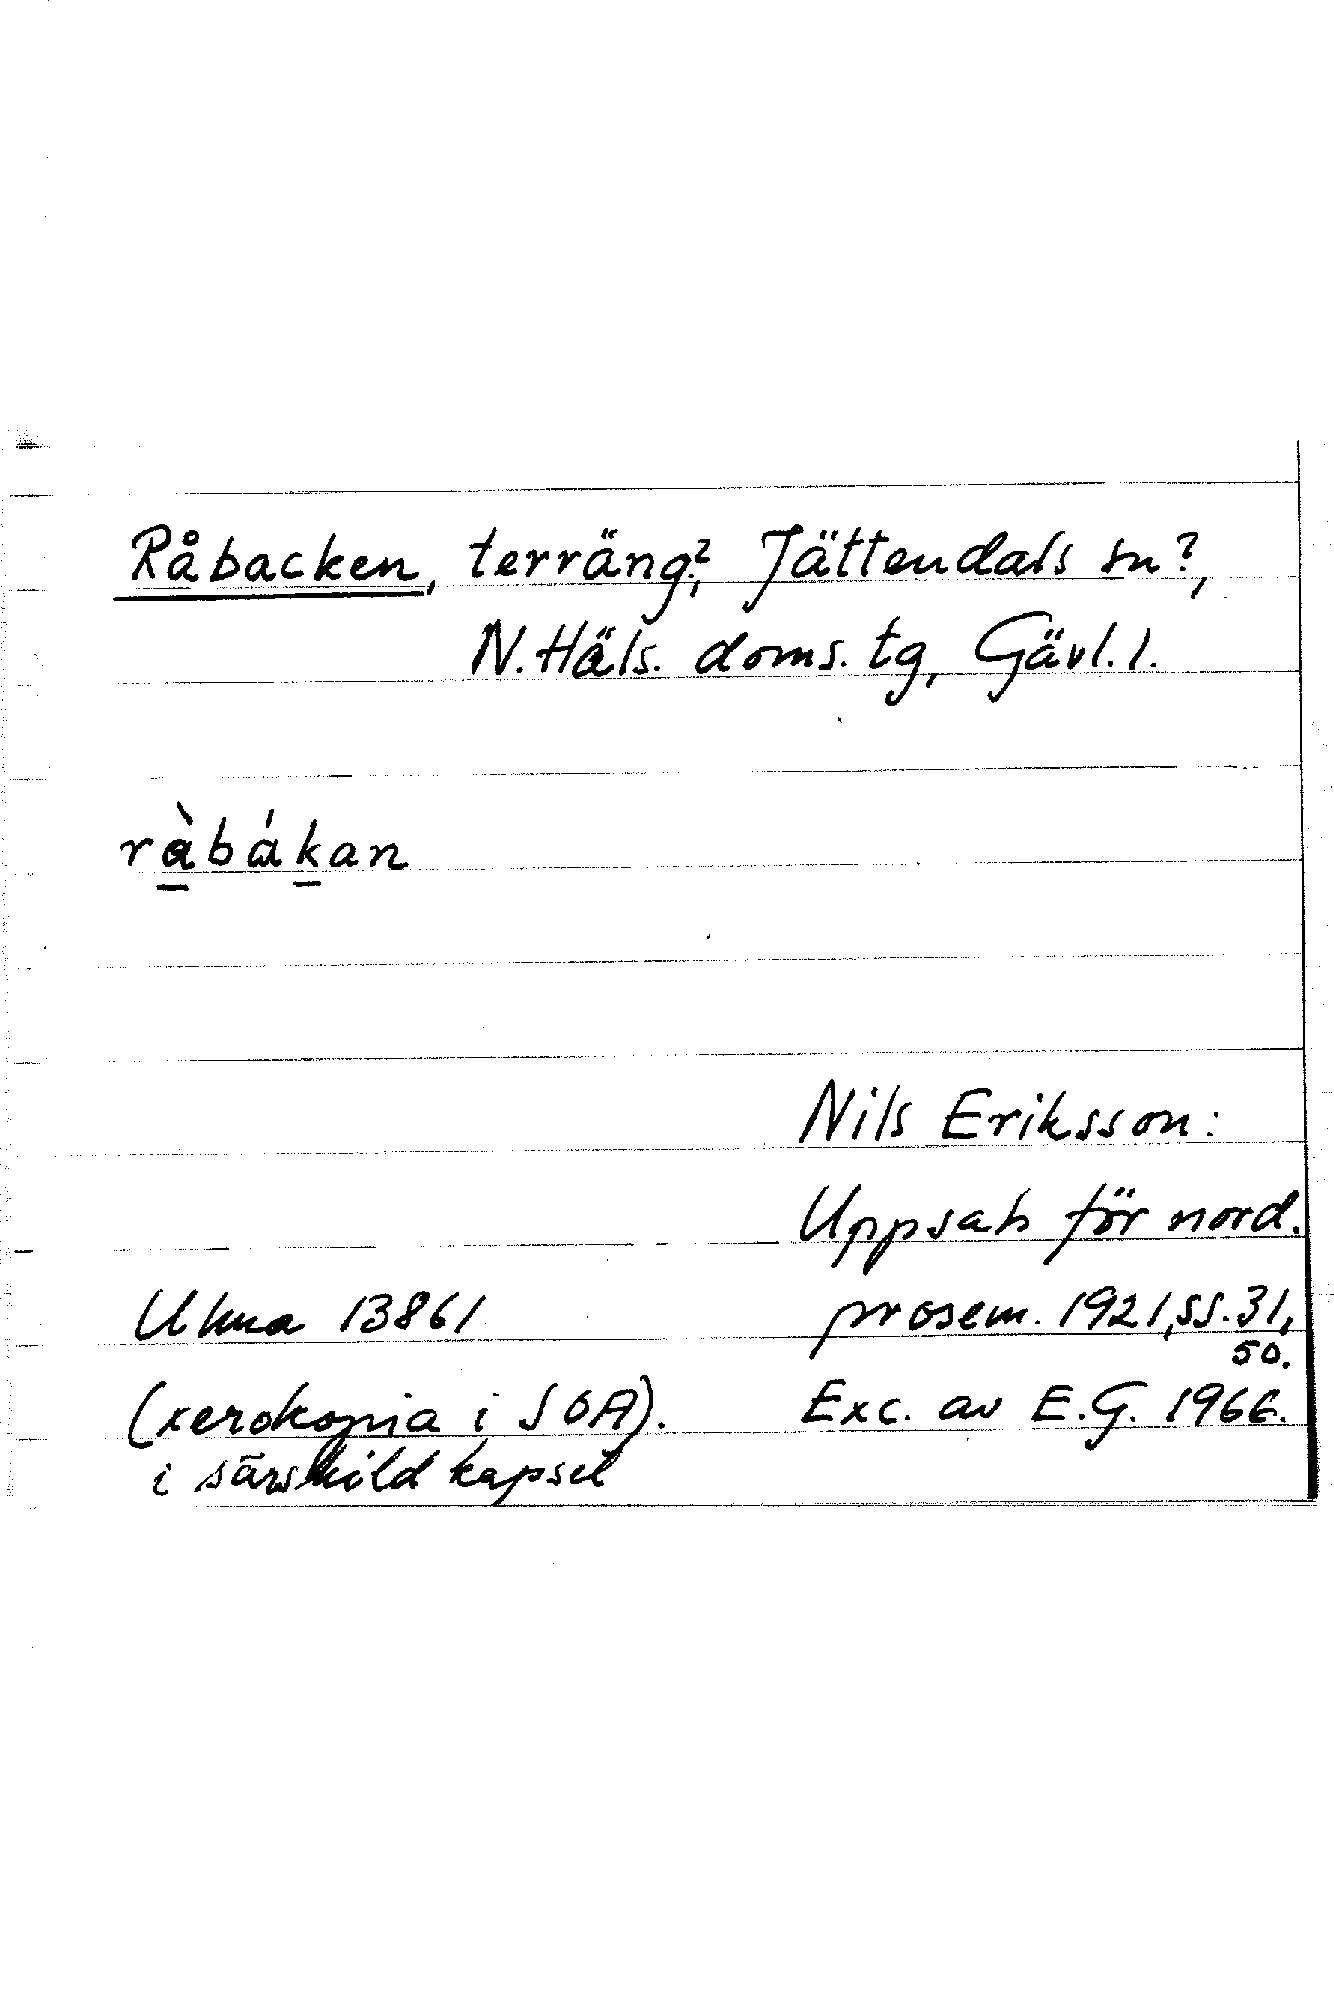 Råbacken, terräng?, Jättendals sn?,
N. Häls. doms. tg, Gävl. l.
ràbákan
Nils Eriksson:
Uppsats för nord.
Ulma 13861 prosem. 1921, ss. 31,
50.
(xerokopia i SOA). Exc. av E.G. 1966.
i särskild kapsel